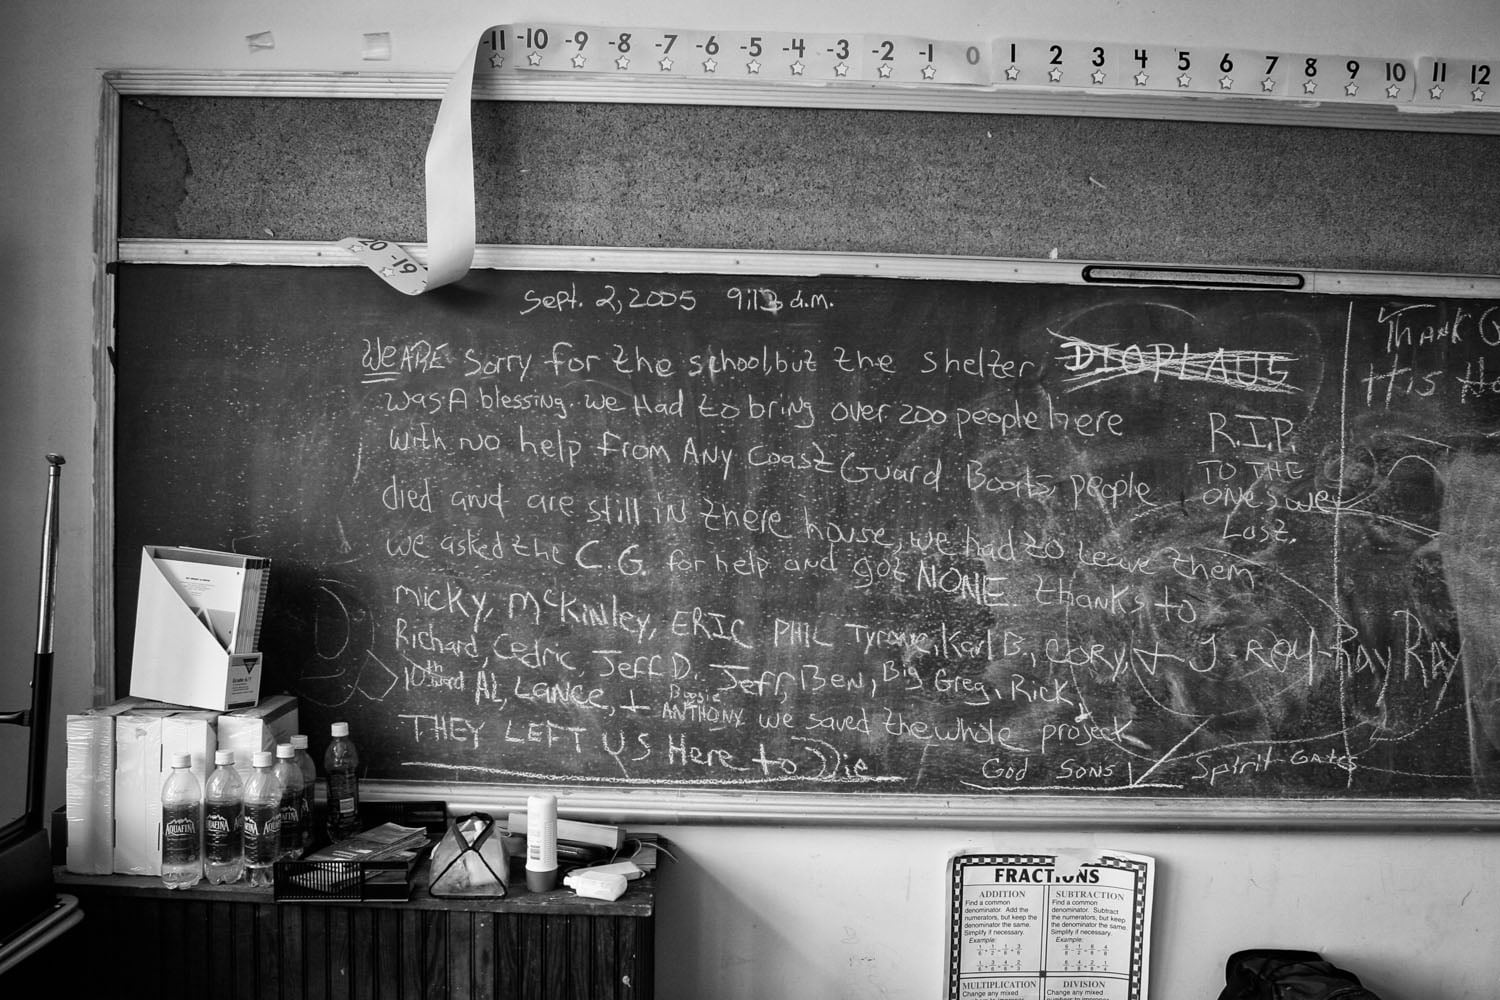 -11 -10 -9 -8 -7 -6 -5 -4 -3 -2 -1 0 1 2 3 4 5 6 7 8 9 10 11 12
20 -19
Sept. 2, 2005 9:13 a.m.
WE ARE Sorry for the school, but the shelter
was A blessing. we Had to bring over 200 people here
with no help from Any Coast Guard Boats, people
died and are still in there house, we had to leave them
we asked the C.G. for help and got NONE. thanks to
micky, McKinley, ERIC PHIL Tyrone, Karl B., CORY, + J Rey-Ray Ray
Richard, Cedric, Jeff D. Jeff, Ben, Big Greg, Rick,
10th ward AL, Lance, + Boogie ANTHONY we saved the whole project
THEY LEFT US Here to Die
God Sons
Spirit GATES
DIOPLAUS
R.I.P.
TO THE
ones we
Lost.
THANK
His
AQUAFINA
AQUAFINA
AQUAFINA
AQUAFINA
FRACTIONS
ADDITION
Find a common
denominator. Add the
numerators, but keep
the denominator the same.
Simplify if necessary.
Example:
SUBTRACTION
Find a common
denominator. Subtract
the numerators, but keep
the denominator the same.
Simplify if necessary.
Example:
MULTIPLICATION
Change any mixed
DIVISION
Change any mixed